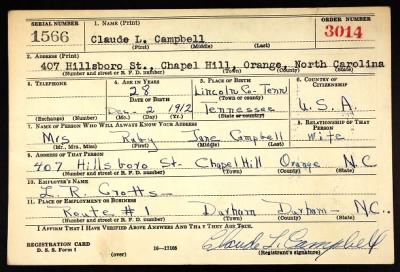 SERIAL NUMBER 1. NAME (Print) ORDER NUMBER
1566 Claude L. Campbell 3014
(First) (Middle) (Last)
2. ADDRESS (Print)
407 Hillsboro St., Chapel Hill, Orange, North Carolina
(Number and street or R. F. D. number) (Town) (County) (State)
3. TELEPHONE 4. AGE IN YEARS 5. PLACE OF BIRTH 6. COUNTRY OF CITIZENSHIP
28 Lincoln Co. Tenn
DATE OF BIRTH (Town or county)
Dec. 2 1912 Tennessee U.S.A.
(Exchange) (Number) (Mo.) (Day) (Yr.) (State or country)
7. NAME OF PERSON WHO WILL ALWAYS KNOW YOUR ADDRESS 8. RELATIONSHIP OF THAT PERSON
Mrs Ruby Jane Campbell Wife
(Mr., Mrs., Miss) (First) (Middle) (Last)
9. ADDRESS OF THAT PERSON
407 Hillsboro St. Chapel Hill Orange N.C
(Number and street or R. F. D. number) (Town) (County) (State)
10. EMPLOYER'S NAME
L. R. Crotts
11. PLACE OF EMPLOYMENT OR BUSINESS
Route #1 Durham Durham N.C.
(Number and street or R. F. D. number) (Town) (County) (State)
I AFFIRM THAT I HAVE VERIFIED ABOVE ANSWERS AND THAT THEY ARE TRUE.
REGISTRATION CARD
D. S. S. Form 1 (over) 16—17105 Claude L. Campbell
(Registrant's signature)